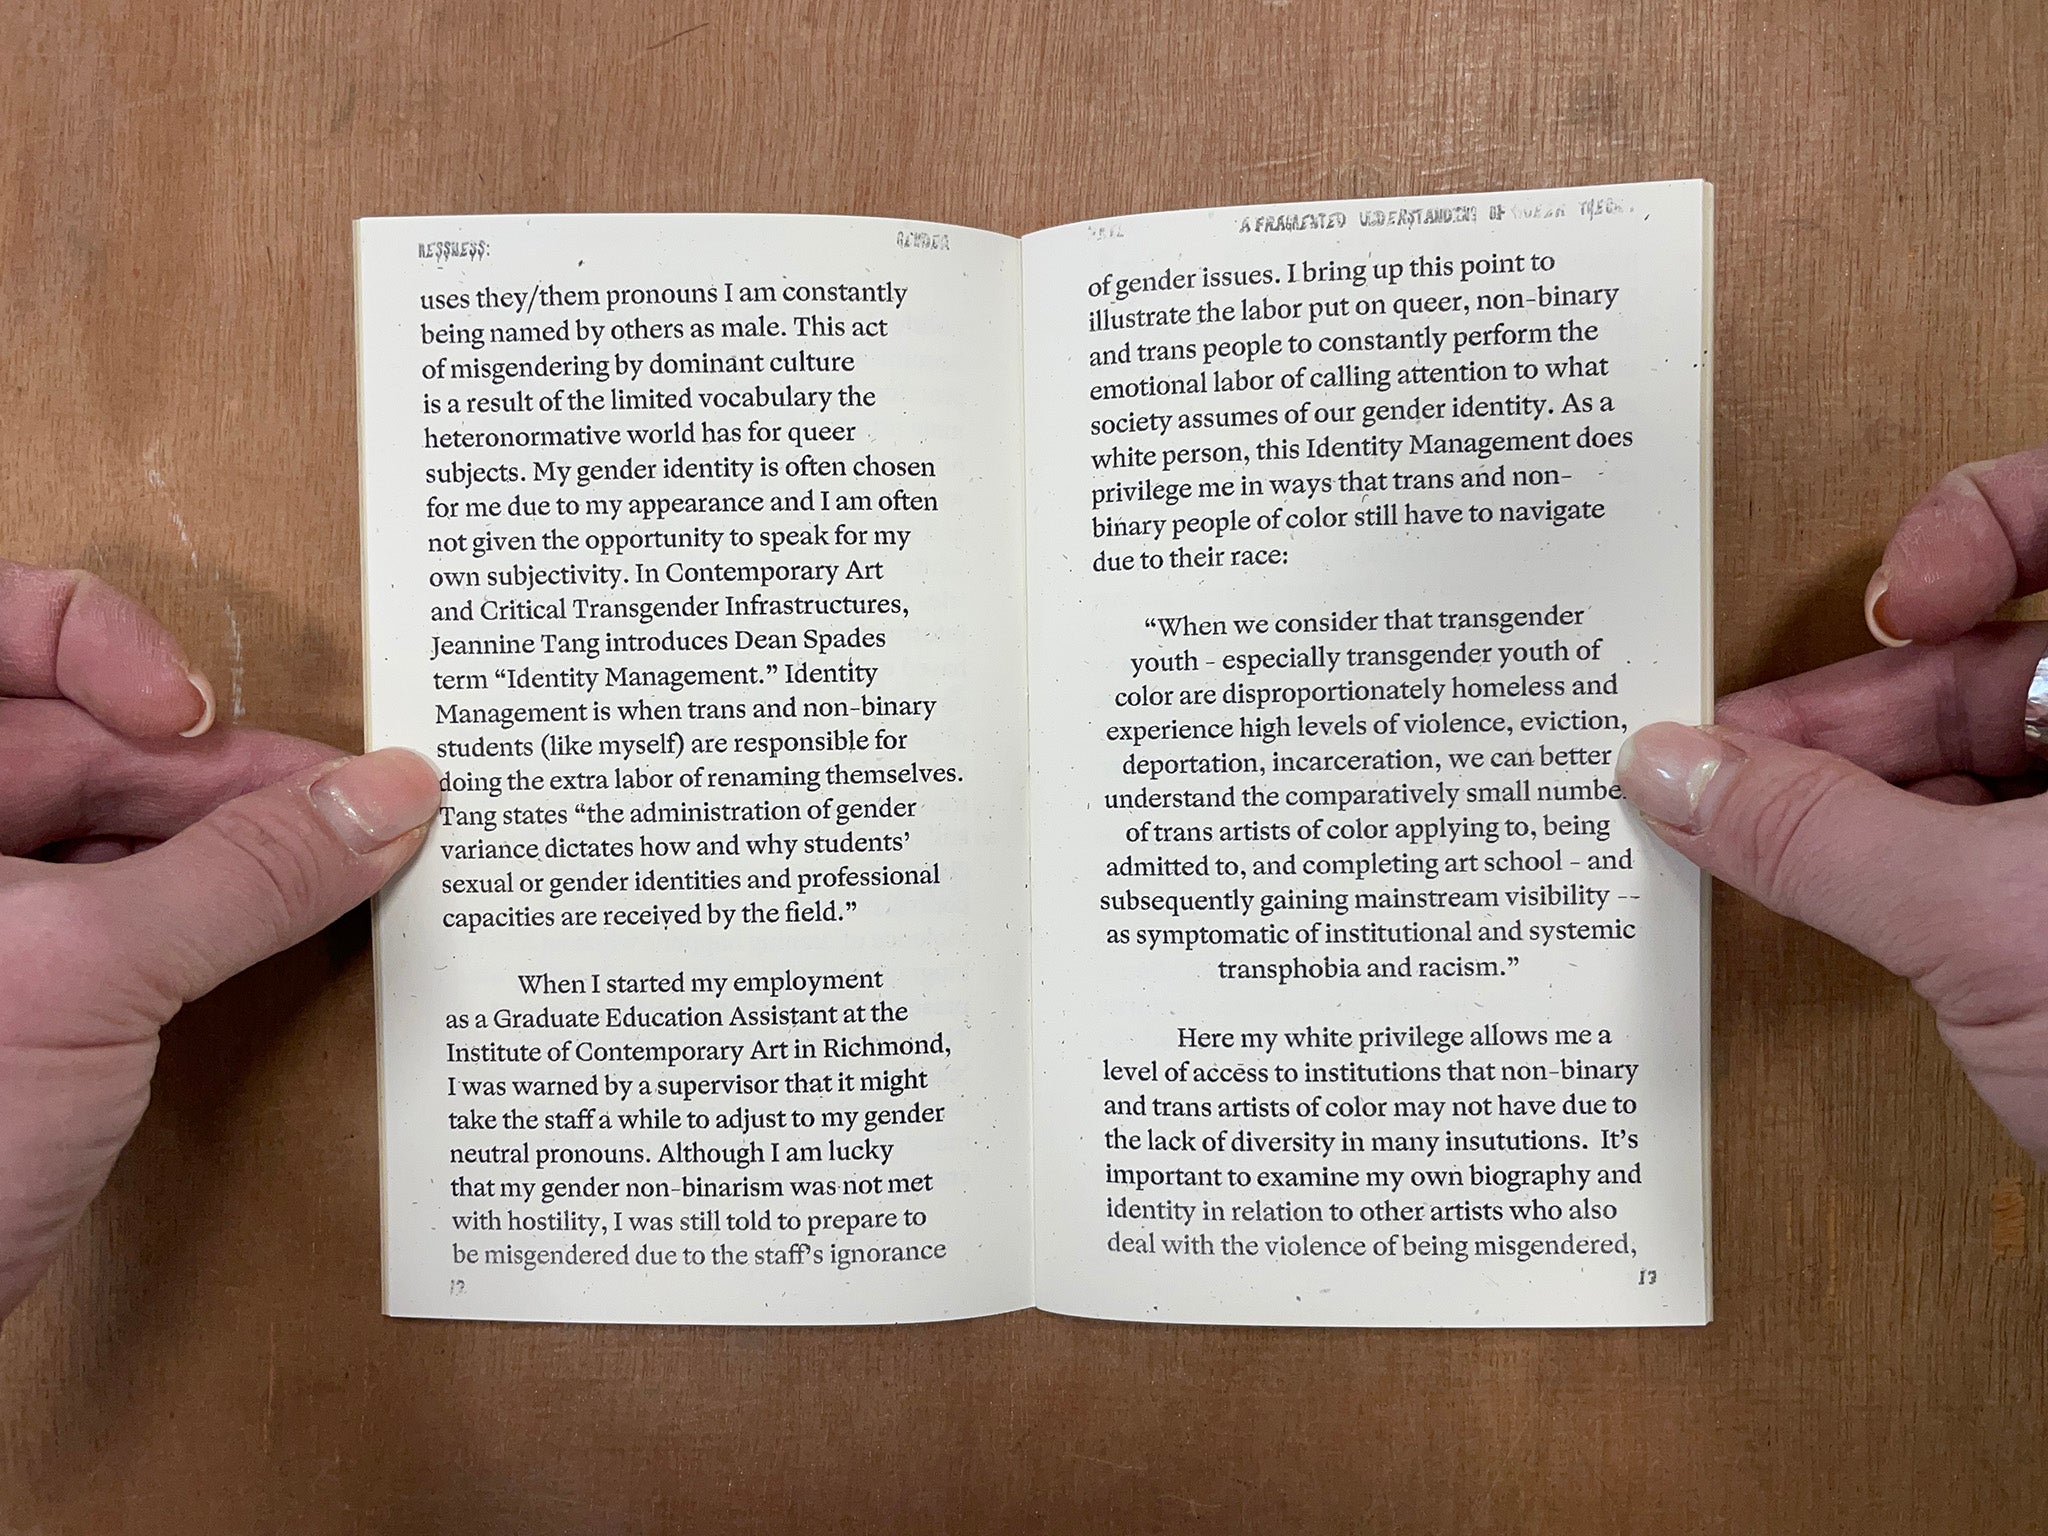 RESSNESS: GENDER
uses they/them pronouns I am constantly
being named by others as male. This act
of misgendering by dominant culture
is a result of the limited vocabulary the
heteronormative world has for queer
subjects. My gender identity is often chosen
for me due to my appearance and I am often
not given the opportunity to speak for my
own subjectivity. In Contemporary Art
and Critical Transgender Infrastructures,
Jeannine Tang introduces Dean Spades
term “Identity Management.” Identity
Management is when trans and non-binary
students (like myself) are responsible for
doing the extra labor of renaming themselves.
Tang states “the administration of gender
variance dictates how and why students’
sexual or gender identities and professional
capacities are received by the field.”
When I started my employment
as a Graduate Education Assistant at the
Institute of Contemporary Art in Richmond,
I was warned by a supervisor that it might
take the staff a while to adjust to my gender
neutral pronouns. Although I am lucky
that my gender non-binarism was not met
with hostility, I was still told to prepare to
be misgendered due to the staff’s ignorance
12
A FRAGMENTED UNDERSTANDING OF QUEER THEORY
of gender issues. I bring up this point to
illustrate the labor put on queer, non-binary
and trans people to constantly perform the
emotional labor of calling attention to what
society assumes of our gender identity. As a
white person, this Identity Management does
privilege me in ways that trans and non-
binary people of color still have to navigate
due to their race:
“When we consider that transgender
youth - especially transgender youth of
color are disproportionately homeless and
experience high levels of violence, eviction,
deportation, incarceration, we can better
understand the comparatively small number
of trans artists of color applying to, being
admitted to, and completing art school - and
subsequently gaining mainstream visibility --
as symptomatic of institutional and systemic
transphobia and racism.”
Here my white privilege allows me a
level of access to institutions that non-binary
and trans artists of color may not have due to
the lack of diversity in many insututions. It’s
important to examine my own biography and
identity in relation to other artists who also
deal with the violence of being misgendered,
13